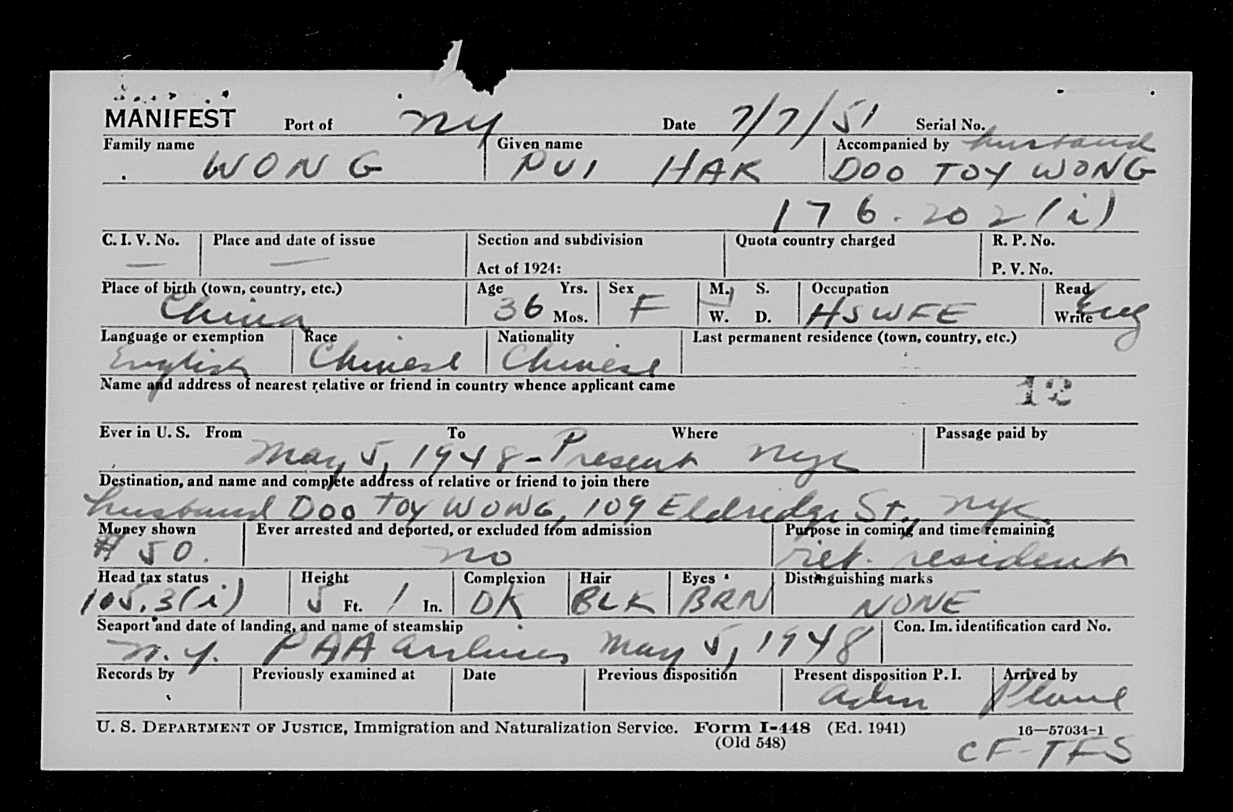 MANIFEST Port of NY Date 7/7/51 Serial No.
Family name WONG Given name PUI HAK Accompanied by husband DOO TOY WONG
176.202(i)
C. I. V. No. — Place and date of issue — Section and subdivision Quota country charged R. P. No.
Act of 1924: P. V. No.
Place of birth (town, country, etc.) China Age 36 Yrs. Mos. Sex F M. S. W. D. Occupation HSWFE Read Write Eng
Language or exemption English Race Chinese Nationality Chinese Last permanent residence (town, country, etc.)
Name and address of nearest relative or friend in country whence applicant came
12
Ever in U. S. From To Where Passage paid by
May 5, 1948 - Present NYC
Destination, and name and complete address of relative or friend to join there
husband DOO TOY WONG, 109 Eldridge St., NYC
Money shown $50. Ever arrested and deported, or excluded from admission no Purpose in coming and time remaining ret. resident
Head tax status 105.3(i) Height 5 Ft. 1 In. Complexion DK Hair BLK Eyes BRN Distinguishing marks NONE
Seaport and date of landing, and name of steamship Con. Im. identification card No.
N.Y. PAA Airlines May 5, 1948
Records by Previously examined at Date Previous disposition Present disposition P. I. adm Arrived by Plane
U. S. DEPARTMENT OF JUSTICE, Immigration and Naturalization Service. Form I-448 (Ed. 1941) 16—57034-1
(Old 548)
CF-TFS